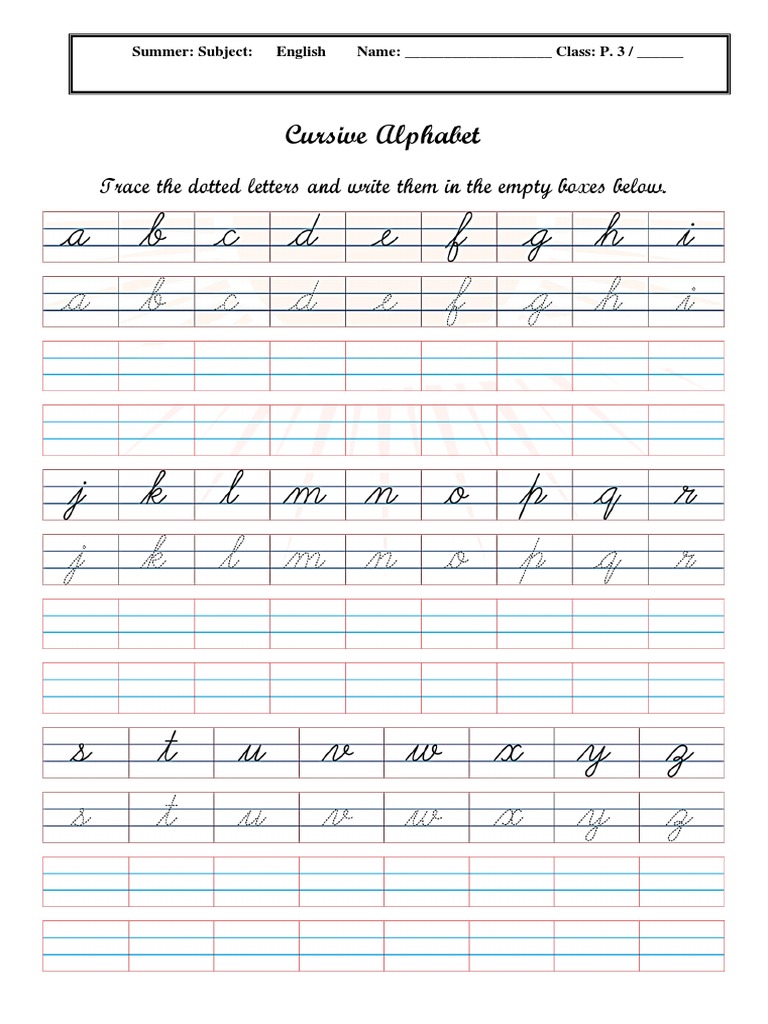 Summer: Subject: English Name: ___________________ Class: P. 3 / ______
Cursive Alphabet
Trace the dotted letters and write them in the empty boxes below.
a b c d e f g h i
a b c d e f g h i
j k l m n o p q r
j k l m n o p q r
s t u v w x y z
s t u v w x y z